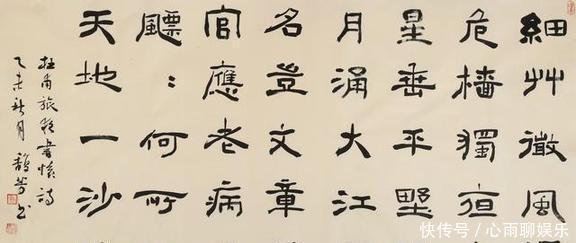 細艸微風
危檣獨夜
星垂平野
月涌大江
名豈文章
官應老病
飄：何所
天地一沙
杜甫旅夜書懷詩
乙未秋月 馥芳书
快传号/心雨聊娱乐